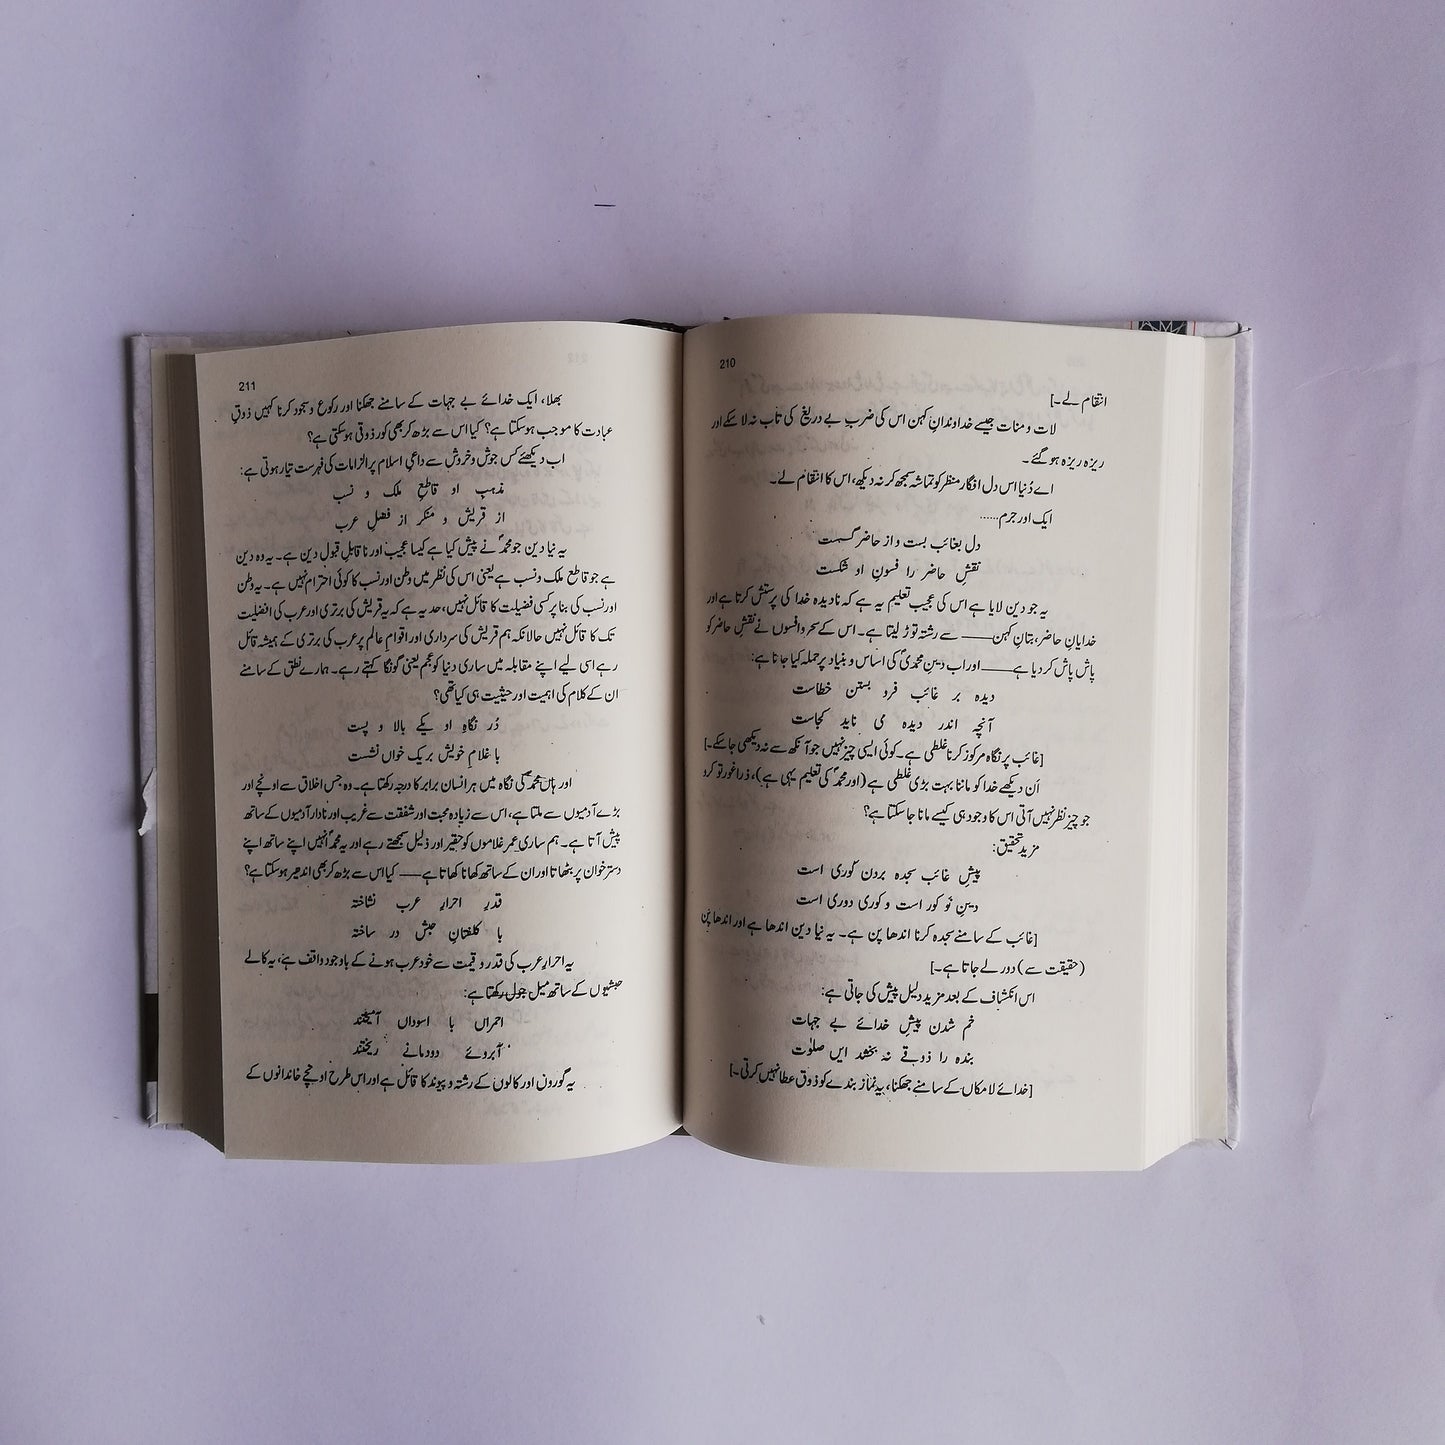 210
انتقام لے۔]
لات و منات جیسے خداوندانِ کہن اس کی ضربِ بے دریغ کی تاب نہ لا سکے اور
ریزہ ریزہ ہو گئے۔
اے دُنیا اس دل افگار منظر کو تماشہ سمجھ کر نہ دیکھ، اس کا انتقام لے۔
ایک اور جرم......
دل بغائب بست و از حاضر گسست
نقشِ حاضر را فسونِ او شکست
یہ جو دین لایا ہے اس کی عجیب تعلیم یہ ہے کہ نادیدہ خدا کی پرستش کرتا ہے اور
خدایانِ حاضر، بتانِ کہن—— سے رشتہ توڑ لیتا ہے۔ اس کے سحر و افسوں نے نقشِ حاضر کو
پاش پاش کر دیا ہے—— اور اب دینِ محمدیؐ کی اساس و بنیاد پر حملہ کیا جاتا ہے:
دیدہ بر غائب فرو بستن خطاست
آنچہ اندر دیدہ می ناید کجاست
[غائب پر نگاہ مرکوز کرنا غلطی ہے۔ کوئی ایسی چیز نہیں جو آنکھ سے نہ دیکھی جا سکے۔]
اَن دیکھے خدا کو ماننا بہت بڑی غلطی ہے (اور محمدؐ کی تعلیم یہی ہے)، ذرا غور تو کرو
جو چیز نظر نہیں آتی اس کا وجود ہی کیسے مانا جا سکتا ہے؟
مزید تحقیق:
پیشِ غائب سجدہ بردن کوری است
دینِ نو کور است و کوری دوری است
[غائب کے سامنے سجدہ کرنا اندھا پن ہے۔ یہ نیا دین اندھا ہے اور اندھا پن
(حقیقت سے) دور لے جاتا ہے۔]
اس انکشاف کے بعد مزید دلیل پیش کی جاتی ہے:
خم شدن پیشِ خدائے بے جہات
بندہ را ذوقے نہ بخشد ایں صلوٰت
[خدائے لامکاں کے سامنے جھکنا، یہ نماز بندے کو ذوق عطا نہیں کرتی۔]
211
بھلا، ایک خدائے بے جہات کے سامنے جھکنا اور رکوع و سجود کرنا کہیں ذوقِ
عبادت کا موجب ہو سکتا ہے؟ کیا اس سے بڑھ کر بھی کور ذوقی ہو سکتی ہے؟
اب دیکھئے کس جوش و خروش سے داعیِ اسلام پر الزامات کی فہرست تیار ہوتی ہے:
مذہبِ او قاطعِ ملک و نسب
از قریش و منکر از فضلِ عرب
یہ نیا دین جو محمدؐ نے پیش کیا ہے کیسا عجیب اور ناقابلِ قبول دین ہے۔ یہ وہ دین
ہے جو قاطعِ ملک و نسب ہے یعنی اس کی نظر میں وطن اور نسب کا کوئی احترام نہیں ہے۔ یہ وطن
اور نسب کی بنا پر کسی فضیلت کا قائل نہیں، حد یہ ہے کہ یہ قریش کی برتری اور عرب کی افضلیت
تک کا قائل نہیں حالانکہ ہم قریش کی سرداری اور اقوامِ عالم پر عرب کی برتری کے ہمیشہ قائل
رہے اسی لیے اپنے مقابلہ میں ساری دنیا کو عجم یعنی گونگا کہتے رہے۔ ہمارے نطق کے سامنے
ان کے کلام کی اہمیت اور حیثیت ہی کیا تھی؟
دُر نگاہِ او یکے بالا و پست
با غلامِ خویش بریک خواں نشست
اور ہاں محمدؐ کی نگاہ میں ہر انسان برابر کا درجہ رکھتا ہے۔ وہ جس اخلاق سے اونچے اور
بڑے آدمیوں سے ملتا ہے، اس سے زیادہ محبت اور شفقت سے غریب اور نادار آدمیوں کے ساتھ
پیش آتا ہے۔ ہم ساری عمر غلاموں کو حقیر اور ذلیل سمجھتے رہے اور یہ محمدؐ انہیں اپنے ساتھ اپنے
دستر خوان پر بٹھاتا اور ان کے ساتھ کھانا کھاتا ہے—— کیا اس سے بڑھ کر بھی اندھیر ہو سکتا ہے؟
قدرِ احرارِ عرب نشاختہ
با کلفتانِ حبش در ساختہ
یہ احرارِ عرب کی قدر و قیمت سے خود عرب ہونے کے باوجود واقف ہے، یہ کالے
حبشیوں کے ساتھ میل جول رکھتا ہے:
احمراں با اسوداں آمیختند
آبروئے دودمانے ریختند
یہ گوروں اور کالوں کے رشتہ و پیوند کا قائل ہے اور اس طرح اونچے خاندانوں کے